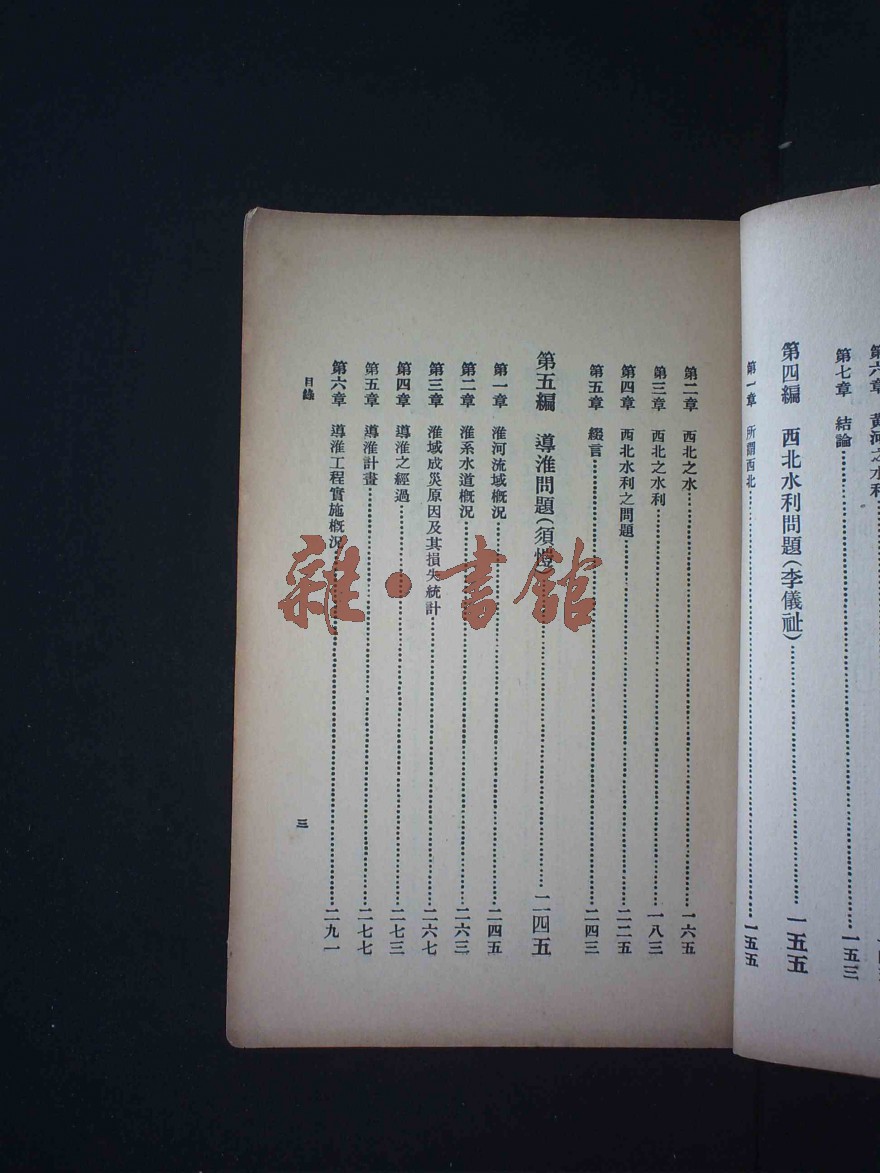 第六章 黃河之水利
第七章 結論……一五三
第四編 西北水利問題(李儀祉)……一五五
第一章 所謂西北……一五五
第二章 西北之水……一六五
第三章 西北之水利……一八三
第四章 西北水利之問題……二二五
第五章 綴言……二四三
第五編 導淮問題(須愷)……二四五
第一章 淮河流域概況……二四五
第二章 淮系水道概況……二六三
第三章 淮域成災原因及其損失統計……二六七
第四章 導淮之經過……二七三
第五章 導淮計畫……二七七
第六章 導淮工程實施概況……二九一
目錄
三
雜·書館